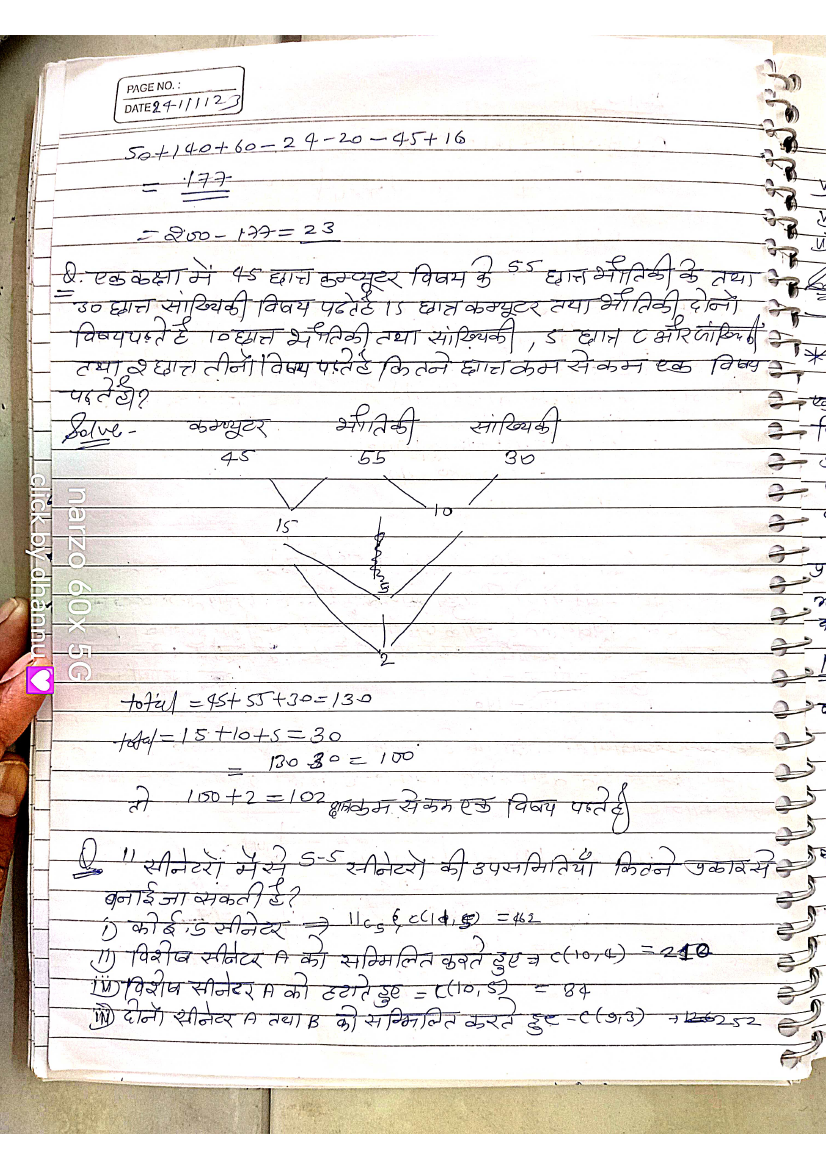 PAGE NO.:
DATE 24/11/23
50+140+60-24-20-45+16
= 177
= 200-177 = 23
Q. एक कक्षा में 45 छात्र कम्प्यूटर विषय के 55 छात्र भौतिकी के तथा
30 छात्र सांख्यिकी विषय पढते है 15 छात्र कम्प्यूटर तथा भौतिकी दोनों
विषय पढते है 10 छात्र भौतिकी तथा सांख्यिकी, 5 छात्र C और सांख्यिकी
तथा 2 छात्र तीनों विषय पढते है कितने छात्र कम से कम एक विषय
पढते हो?
Solve - कम्प्यूटर भौतिकी सांख्यिकी
45 55 30
15 10
5
2
total = 45+55+30=130
total = 15+10+5=30
= 130 30 = 100
तो 100+2=102 छात्र कम से कम एक विषय पढते है
Q 11 सीनेटरों में से 5-5 सीनेटरों की उपसमितियाँ कितने प्रकार से
बनाई जा सकती है?
i) कोई 5 सीनेटर ⇒ 11c5 C(11,5) = 462
ii) विशेष सीनेटर A को सम्मिलित करते हुए ⇒ C(10,4) = 210
iii) विशेष सीनेटर A को हटाते हुए = C(10,5) = 84
दोनों सीनेटर A तथा B को सम्मिलित करते हुए - C(9,3) → 252
narzo 60x 5G
click by dhannu